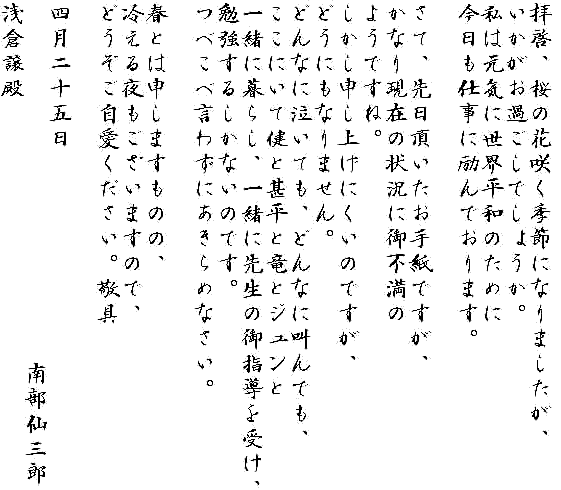 拝啓、桜の花咲く季節になりましたが、
いかがお過ごしでしょうか。
私は元気に世界平和のために
今日も仕事に励んでおります。
さて、先日頂いたお手紙ですが、
かなり現在の状況に御不満の
ようですね。
しかし申し上げにくいのですが、
どうにもなりません。
どんなに泣いても、どんなに叫んでも、
ここにいて健と甚平と竜とジュンと
一緒に暮らし、一緒に先生の御指導を受け、
勉強するしかないのです。
つべこべ言わずにあきらめなさい。
春とは申しますものの、
冷える夜もございますので、
どうぞご自愛ください。敬具
四月二十五日
南部仙三郎
浅倉譲殿